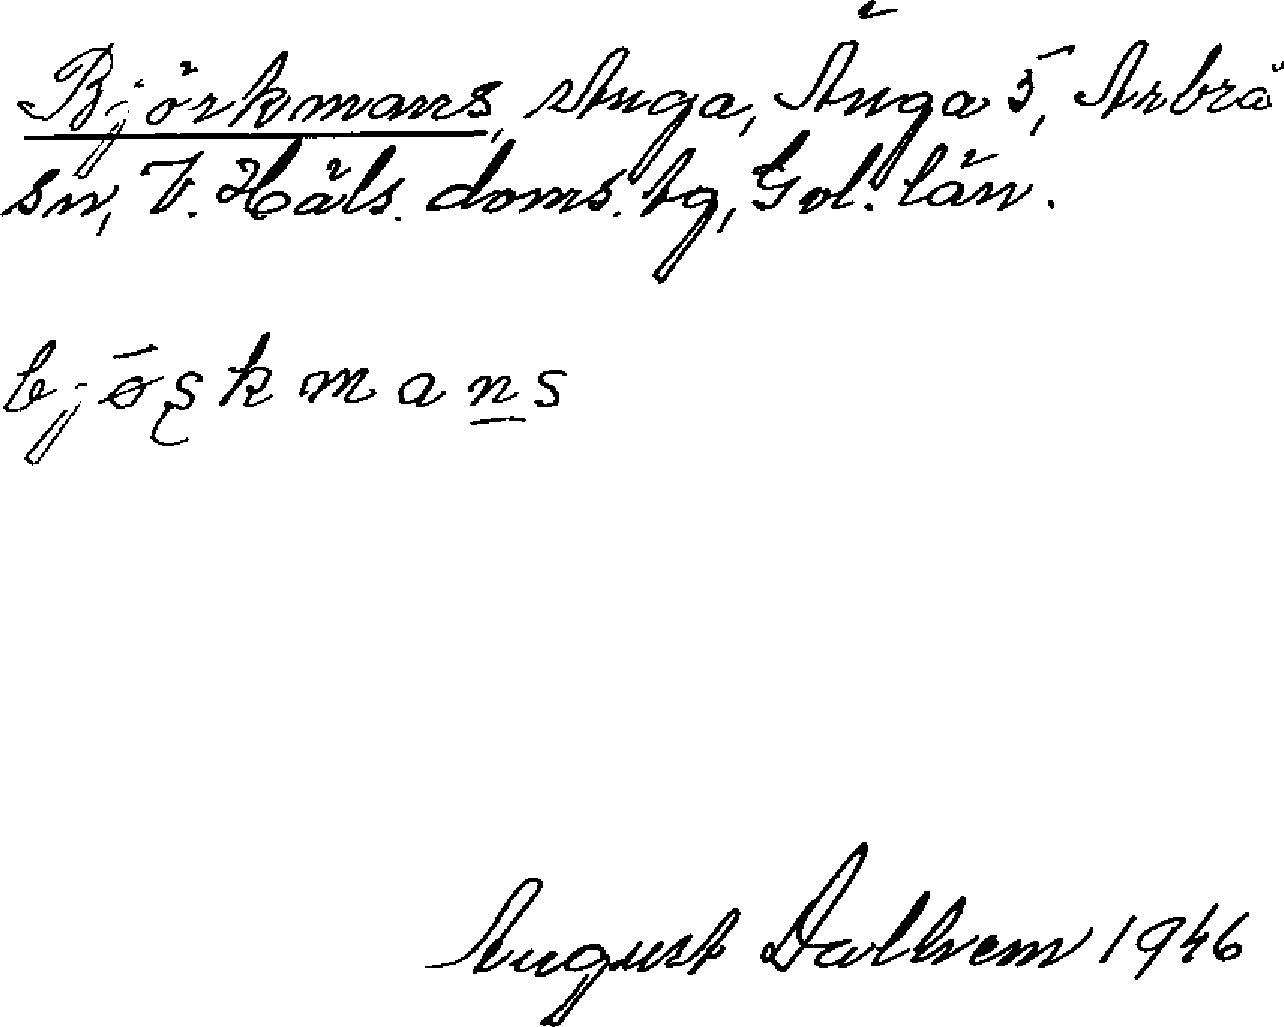 Björkmans, Anga, Änga 5, Arbrå
sn, V. Häls. doms. tg, Gvl. län.
b j ø̄ ʂ k m a n̲ s
August Dalhem 1946